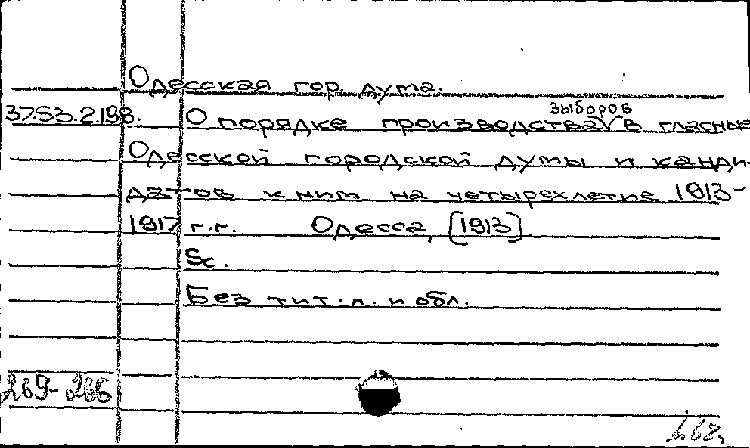 Одесская гор. дума.
37.53.2198. О порядке производства выборов в гласные
Одесской городской думы и канди-
датов к ним на четырехлетие 1913-
1917 г.г. Одесса, [1913]
5с.
Без тит. л. и обл.